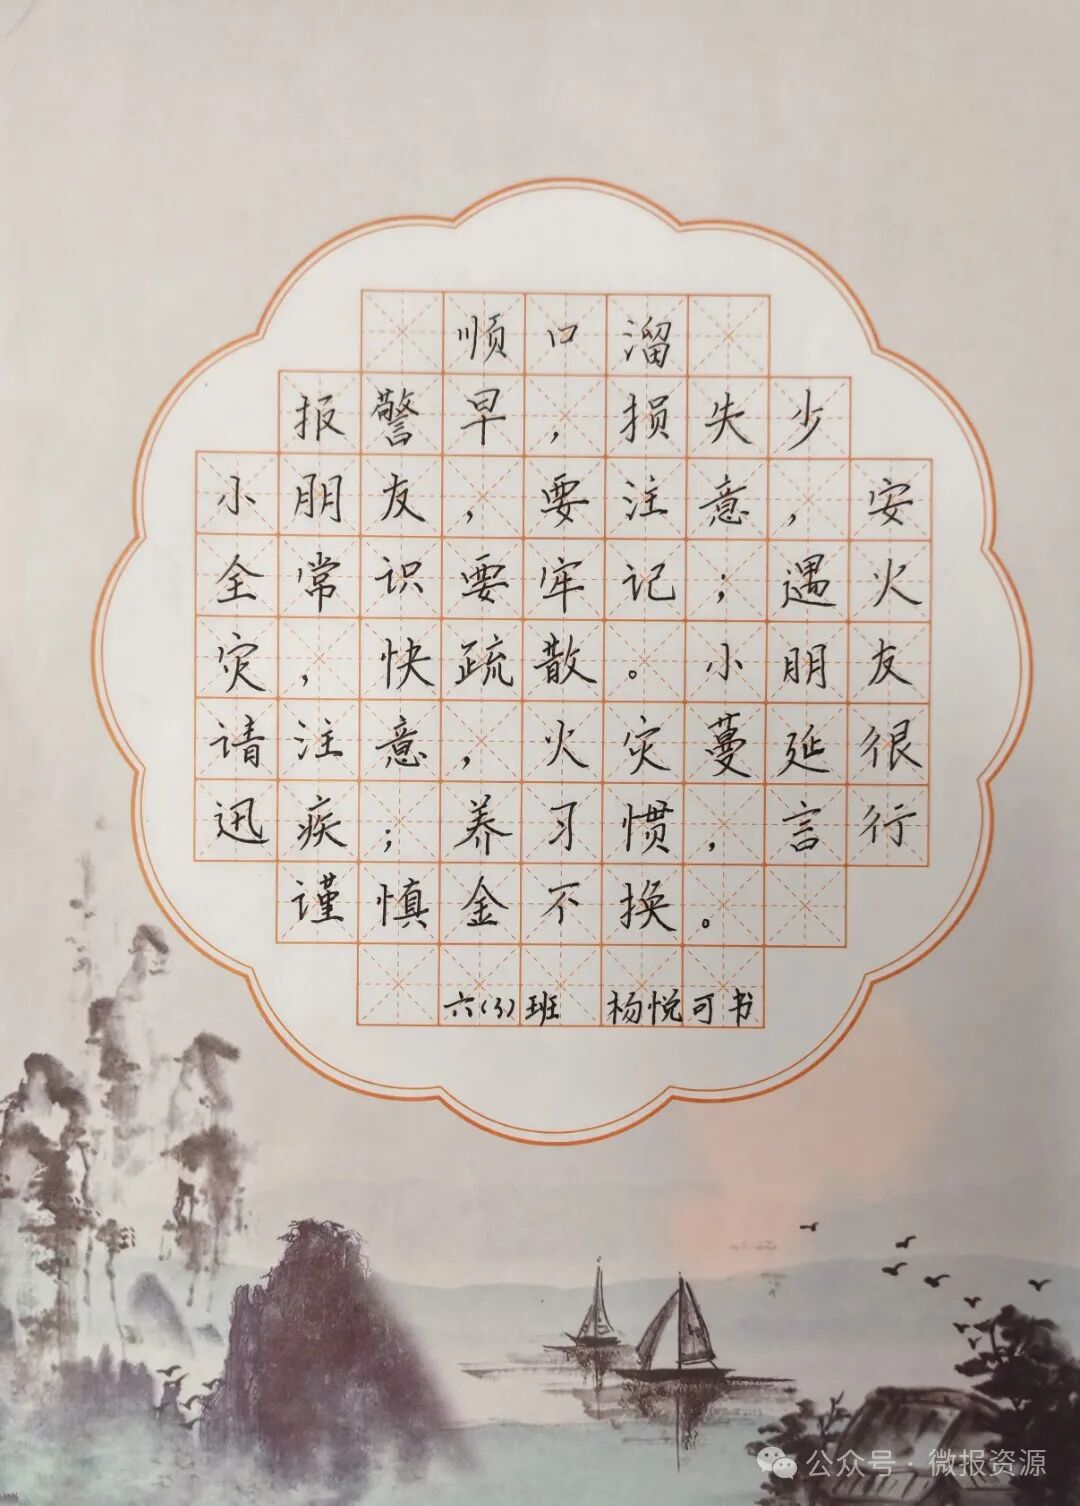 顺口溜
报警早，损失少
小朋友，要注意，安
全常识要牢记；遇火
灾，快疏散。小朋友
请注意，火灾蔓延很
迅疾；养习惯，言行
谨慎金不换。
六(3)班 杨悦可书
公众号·微报资源